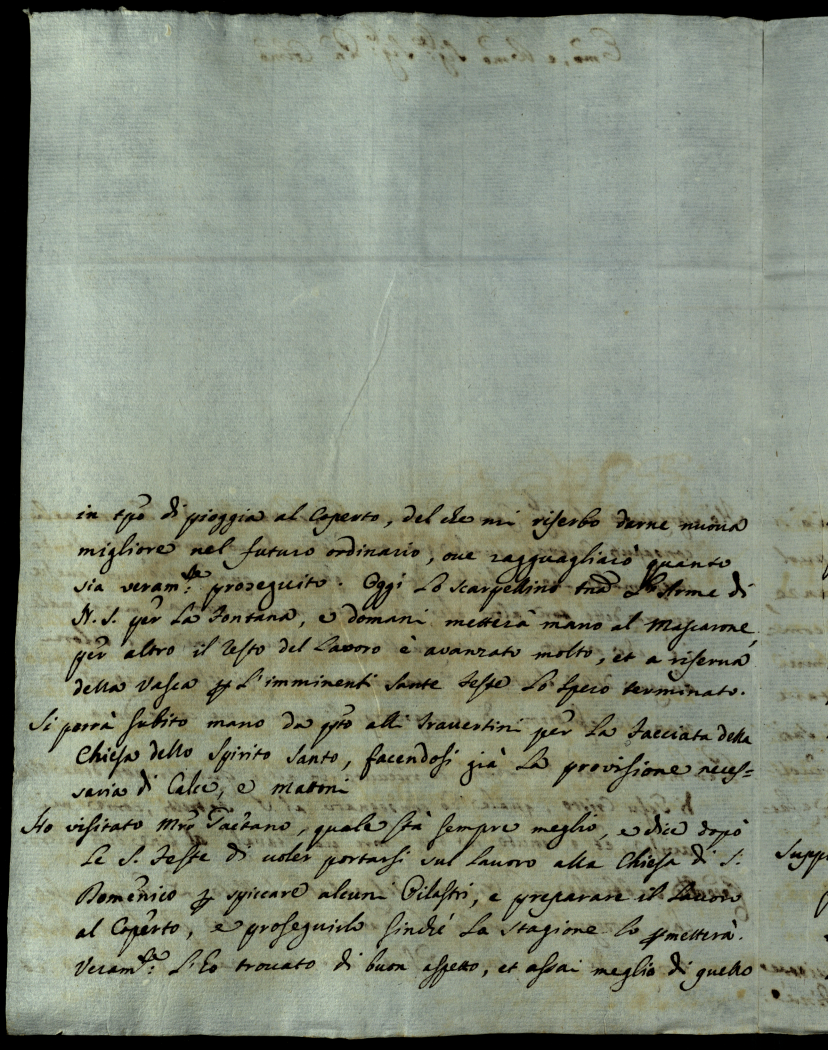 in tp͞o di pioggia al Coperto, del che mi riserbo darne nuova
migliore nel futuro ordinario, ove ragguagliarò quanto
sia veram.te proseguito. Oggi Lo scarpellino Arme di
N. S. per La Fontana, e domani metterà mano al Mascarone,
per altro il resto del Lavoro è avanzato molto, et a riserva
della Vasca ꝑ L'imminenti Sante Feste Lo spero terminato.
Si porrà subito mano da q͞to alli Travertini per La Facciata della
Chiesa dello Spirito Santo, facendosi già La provisione neces=
saria di Calce, e Mattoni
Ho visitato Mro Gaetano, quale stà sempre meglio, e dice dopò
Le S. Feste di voler portarsi sul Lavoro alla Chiesa di S.
Domenico ꝑ spiccare alcuni Pilastri, e preparare il Lavoro
al Coperto, e proseguirlo sinché La Stagione lo ꝑmetterà.
Veram.te L'ho trovato di buon aspetto, et assai meglio di quello
Supp